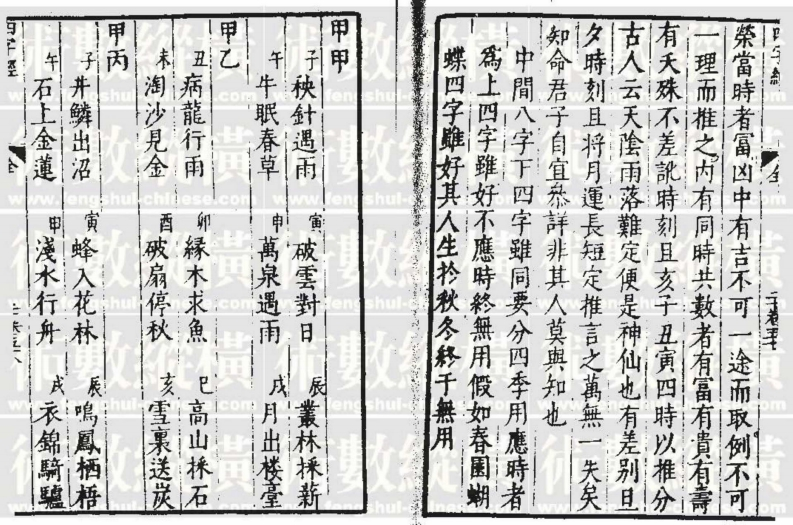 榮當時者富凶中有吉不可一途而取例不可
一理而推之内有同時共數者有富有貴有壽
有夭殊不差訛時刻且亥子丑寅四時以推分
古人云天陰雨落難定便是神仙也有差别旦
夕時刻且将月運長短定推言之萬無一失矣
知命君子自宜叅詳非其人莫與知也
中間八字下四字雖同要分四季用應時者
爲上四字雖好不應時終無用假如春園蝴
蝶四字雖好其人生扵秋冬終于無用
甲甲
子 秧針遇雨 寅 破雲對日 辰 叢林採薪
午 牛眠春草 申 萬泉遇雨 戌 月出楼臺
甲乙
丑 病龍行雨 卯 緣木求魚 巳 高山採石
未 淘沙見金 酉 破扇停秋 亥 雪裏送炭
甲丙
子 井鱗出沼 寅 蜂入花林 辰 鳴鳳栖梧
午 石上金蓮 申 淺水行舟 戌 衣錦騎驢
四字經
全
術數縱橫
www.fengshui-chinese.com